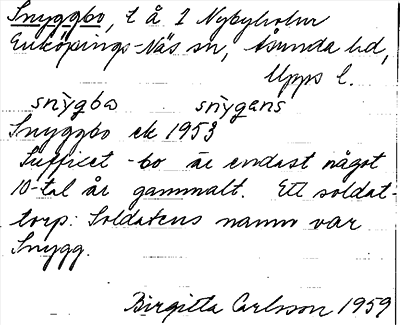 Snyggbo, t å 1 Nybyholm
Enköpings-Näs sn, Åsunda hd,
Upps l.
snỳgbo snỳgens
Snyggbo ek 1953
Suffixet -bo är endast något
10-tal år gammalt. Ett soldat-
torp. Soldatens namn var
Snygg.
Birgitta Carlsson 1959